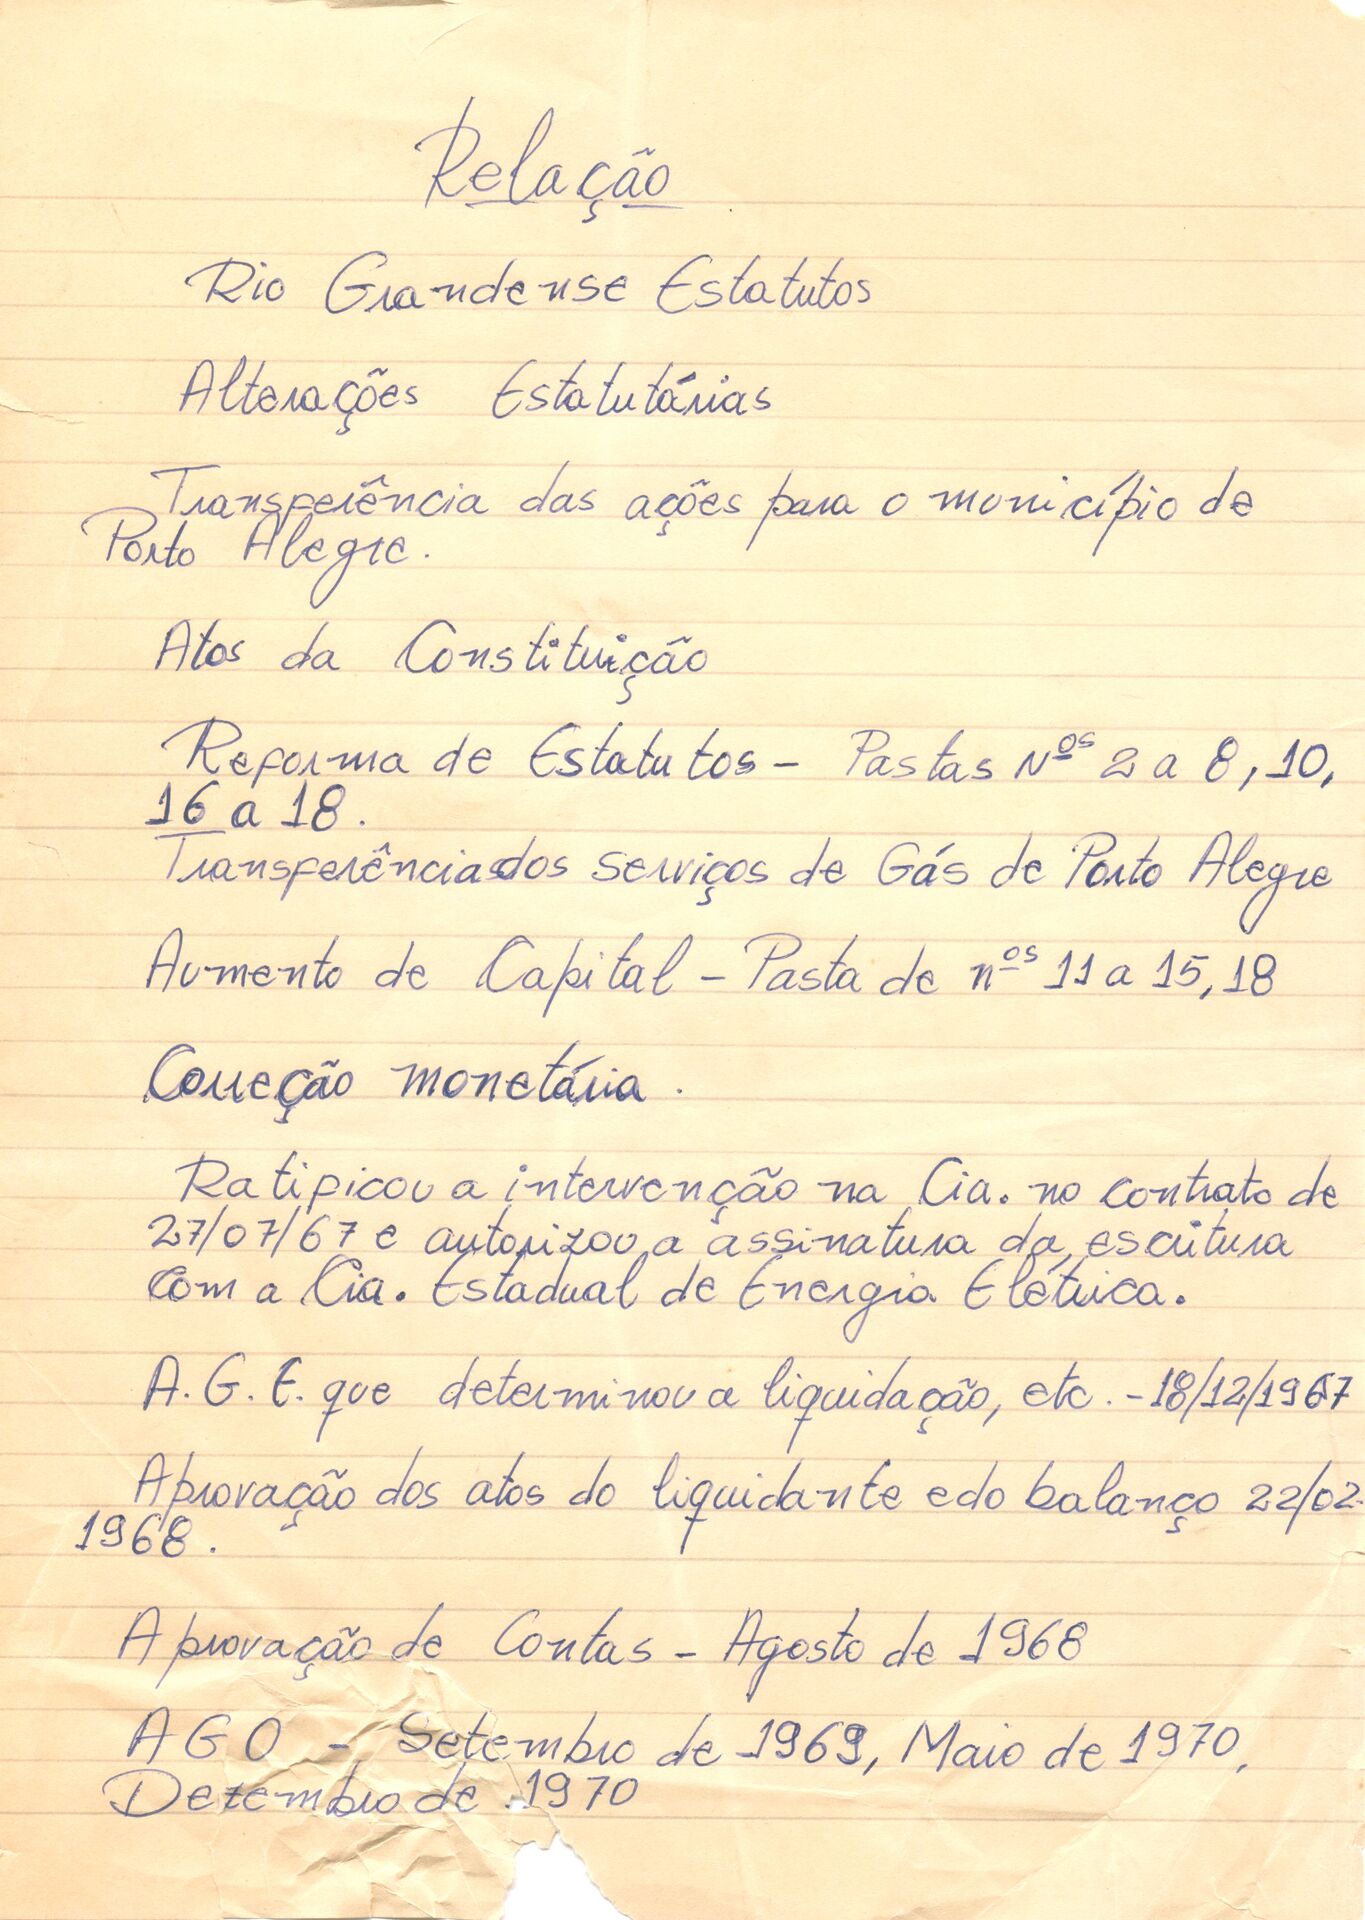 Relação
Rio Grandense Estatutos
Alterações Estatutárias
Transferência das ações para o município de
Porto Alegre.
Atos da Constituição
Reforma de Estatutos - Pastas Nºs 2 a 8, 10,
16 a 18.
Transferências dos serviços de Gás de Porto Alegre
Aumento de Capital - Pasta de nºs 11 a 15, 18
Correção monetária.
Ratificou a intervenção na Cia. no contrato de
27/07/67 e autorizou a assinatura da escritura
com a Cia. Estadual de Energia Elétrica.
A.G.E. que determinou a liquidação, etc. - 18/12/1967
Aprovação dos atos do liquidante e do balanço 22/02.
1968.
Aprovação de Contas - Agosto de 1968
AGO - Setembro de 1969, Maio de 1970,
Dezembro de 1970